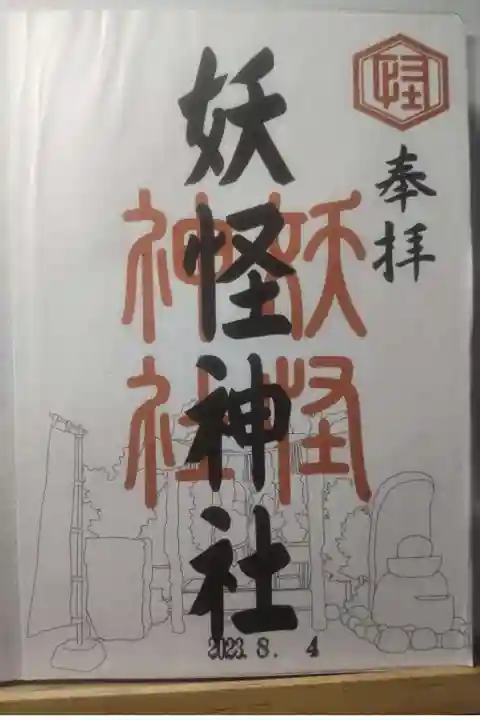 怪
奉拝
妖怪神社
妖怪
神社
2023.8. 4